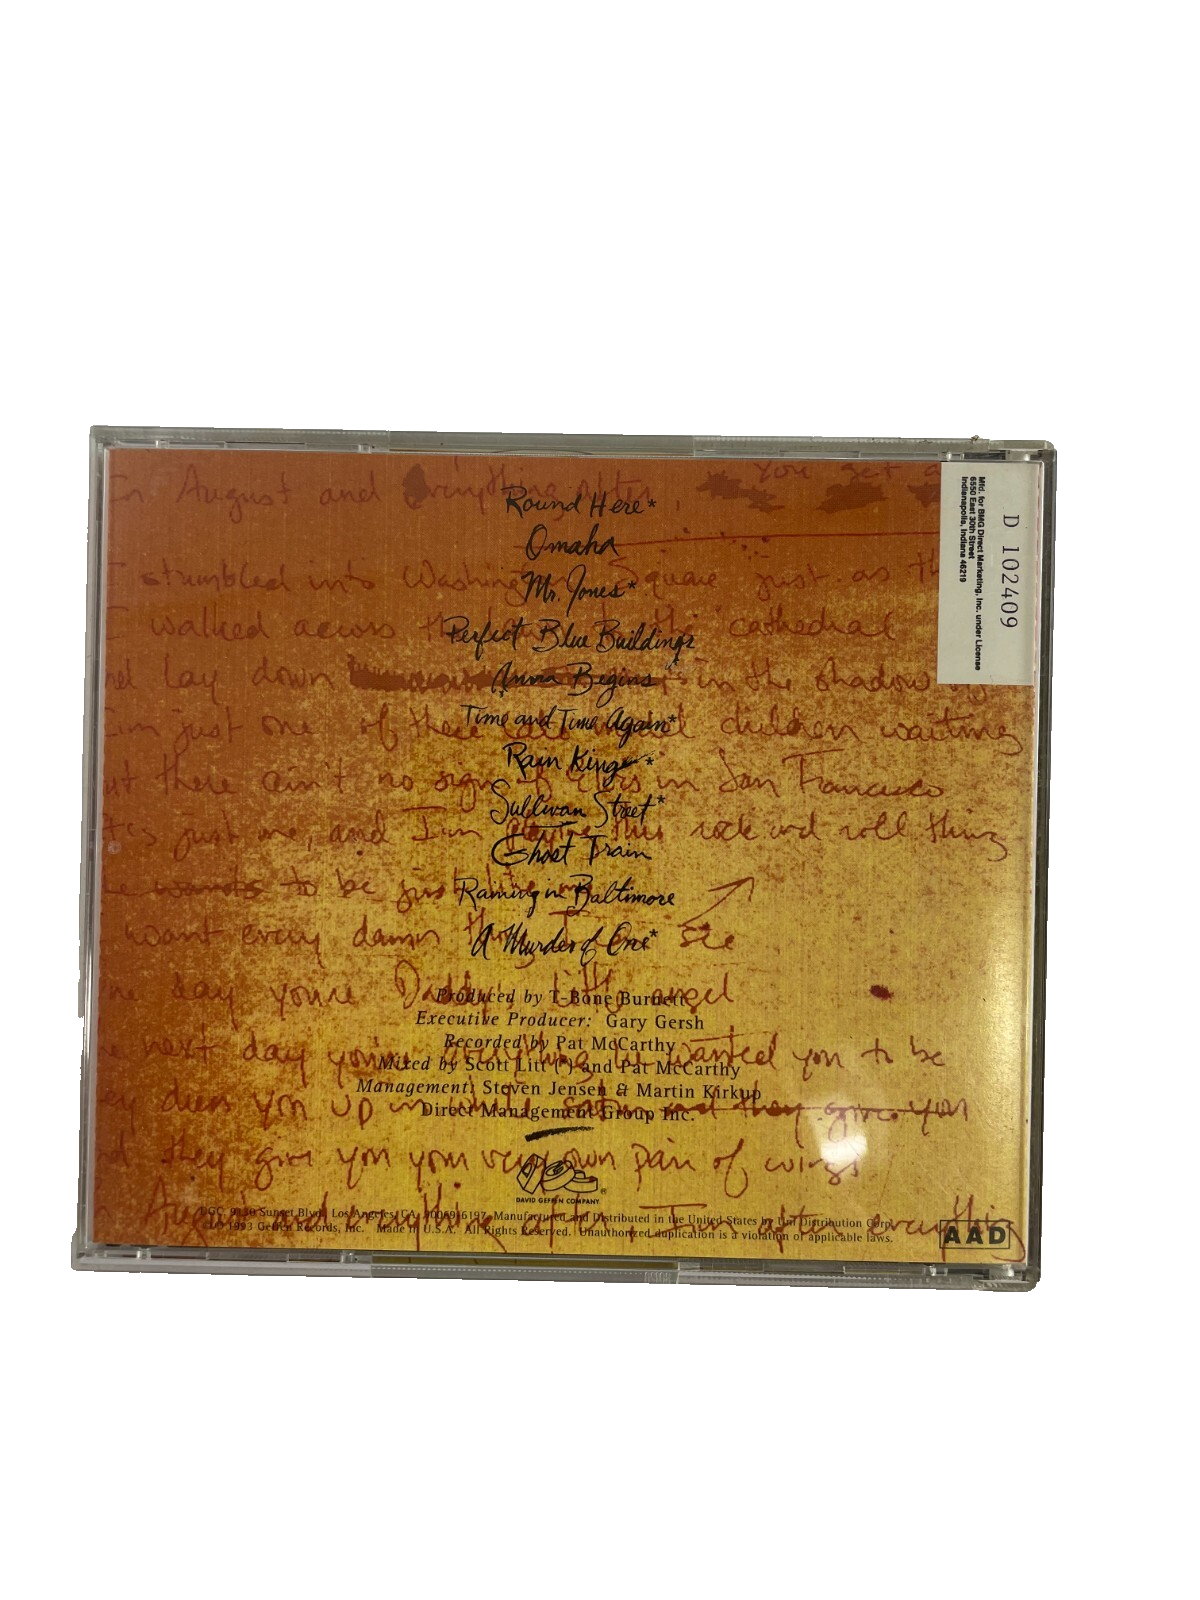 In August and everything after, You get a
Round Here*
Omaha
I stumbled into Washington Square just as th
Mr. Jones*
I walked across the cathedral
Perfect Blue Buildings
lay down in the shadow
Anna Begins*
I'm just one of these children waiting
Time and Time Again*
there ain't no sign of in San Francisco
Rain King*
Sullivan Street*
just me, and I'm playing this rock and roll thing
Ghost Train
wants to be just like me
Raining in Baltimore
want every damn thing I see
A Murder of One*
day you're Daddy's little angel
Produced by T-Bone Burnett
Executive Producer: Gary Gersh
Recorded by Pat McCarthy
next day you're everything he wanted you to be
Mixed by Scott Litt (*) and Pat McCarthy
Management: Steven Jensen & Martin Kirkup
dress you up in white satin and they give you
Direct Management Group Inc.
they give you your very own pair of wings
DAVID GEFFEN COMPANY
August and everything after, I'm after everything
DGC, 9130 Sunset Blvd., Los Angeles, CA. 90069-6197. Manufactured and Distributed in the United States by Uni Distribution Corp.
©℗ 1993 Geffen Records, Inc. Made in U.S.A. All Rights Reserved. Unauthorized duplication is a violation of applicable laws.
AAD
D 102409
Mfd. for BMG Direct Marketing, Inc. under License
6550 East 30th Street
Indianapolis, Indiana 46219